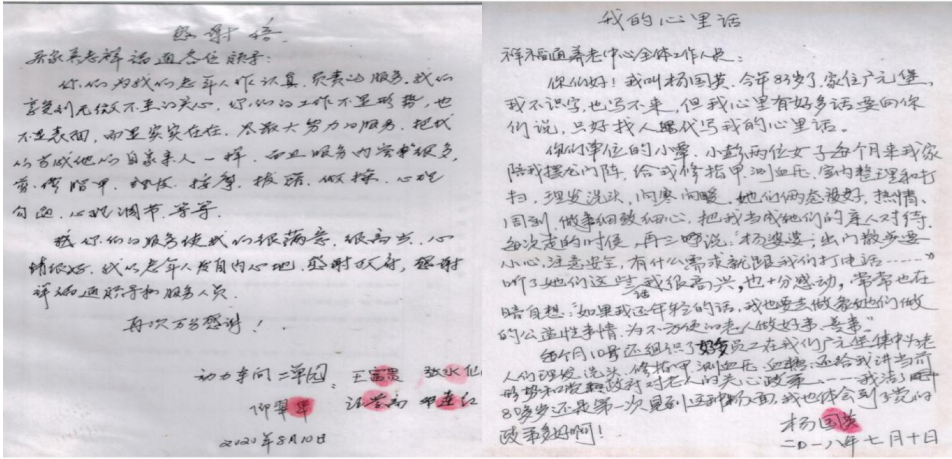 感谢信
居家养老祥福通各位领导:
你们为我们老年人作认真、负责的服务,我们
享受到无微不至的关心,你们的工作不是形势,也
不是表相,而是实实在在,尽最大努力的服务,把我
们当成他们自家亲人一样,而且服务内容很多,
剪修脂甲、理发、按摩、做操、心理
勾通、心理调节、等等。
你们的服务使我们很满意,很高兴,心
情很好,我们老年人发自内心地,感谢政府,感谢
祥福通领导和服务人员。
再次万分感谢!
动力车间二单园:王富贵
2020年8月10日
我的心里话
祥福通养老中心全体工作人员:
你们好!我叫杨国英,今年83岁了,家住广元堡,
我不识字,也写不来,但我心里有好多话要向你
们说,只好找人代写我的心里话。
你们单位的小覃、小彭两位女子每个月来我家
陪我摆龙门阵,给我修指甲、测血压,室内整理和打
扫,理发洗头,问寒问暖,她们俩态度好,热情、
周到,做事细致细心,把我当成他们的亲人对待。
每次走的时候,再三嘱说:“杨婆婆,出门散步要
小心,注意安全,有什么需求就跟我们打电话……”
听了她们这些话我很高兴,也十分感动,常常也在
暗自想:“如果我还年轻的话,我也要去做象她们做
的公益性事情,为不方便的老人做好事、善事。”
每个月10号还组织了好多员工在我们广元堡集中为老
人们理发、洗头、修指甲、测血压、血糖,还给我讲当前
形势和党和政府对老人的关心政策……我活了
80多岁还是第一次见到这种场面,我也体会到了党的
政策多好啊!
杨国英
二〇一八年七月十日